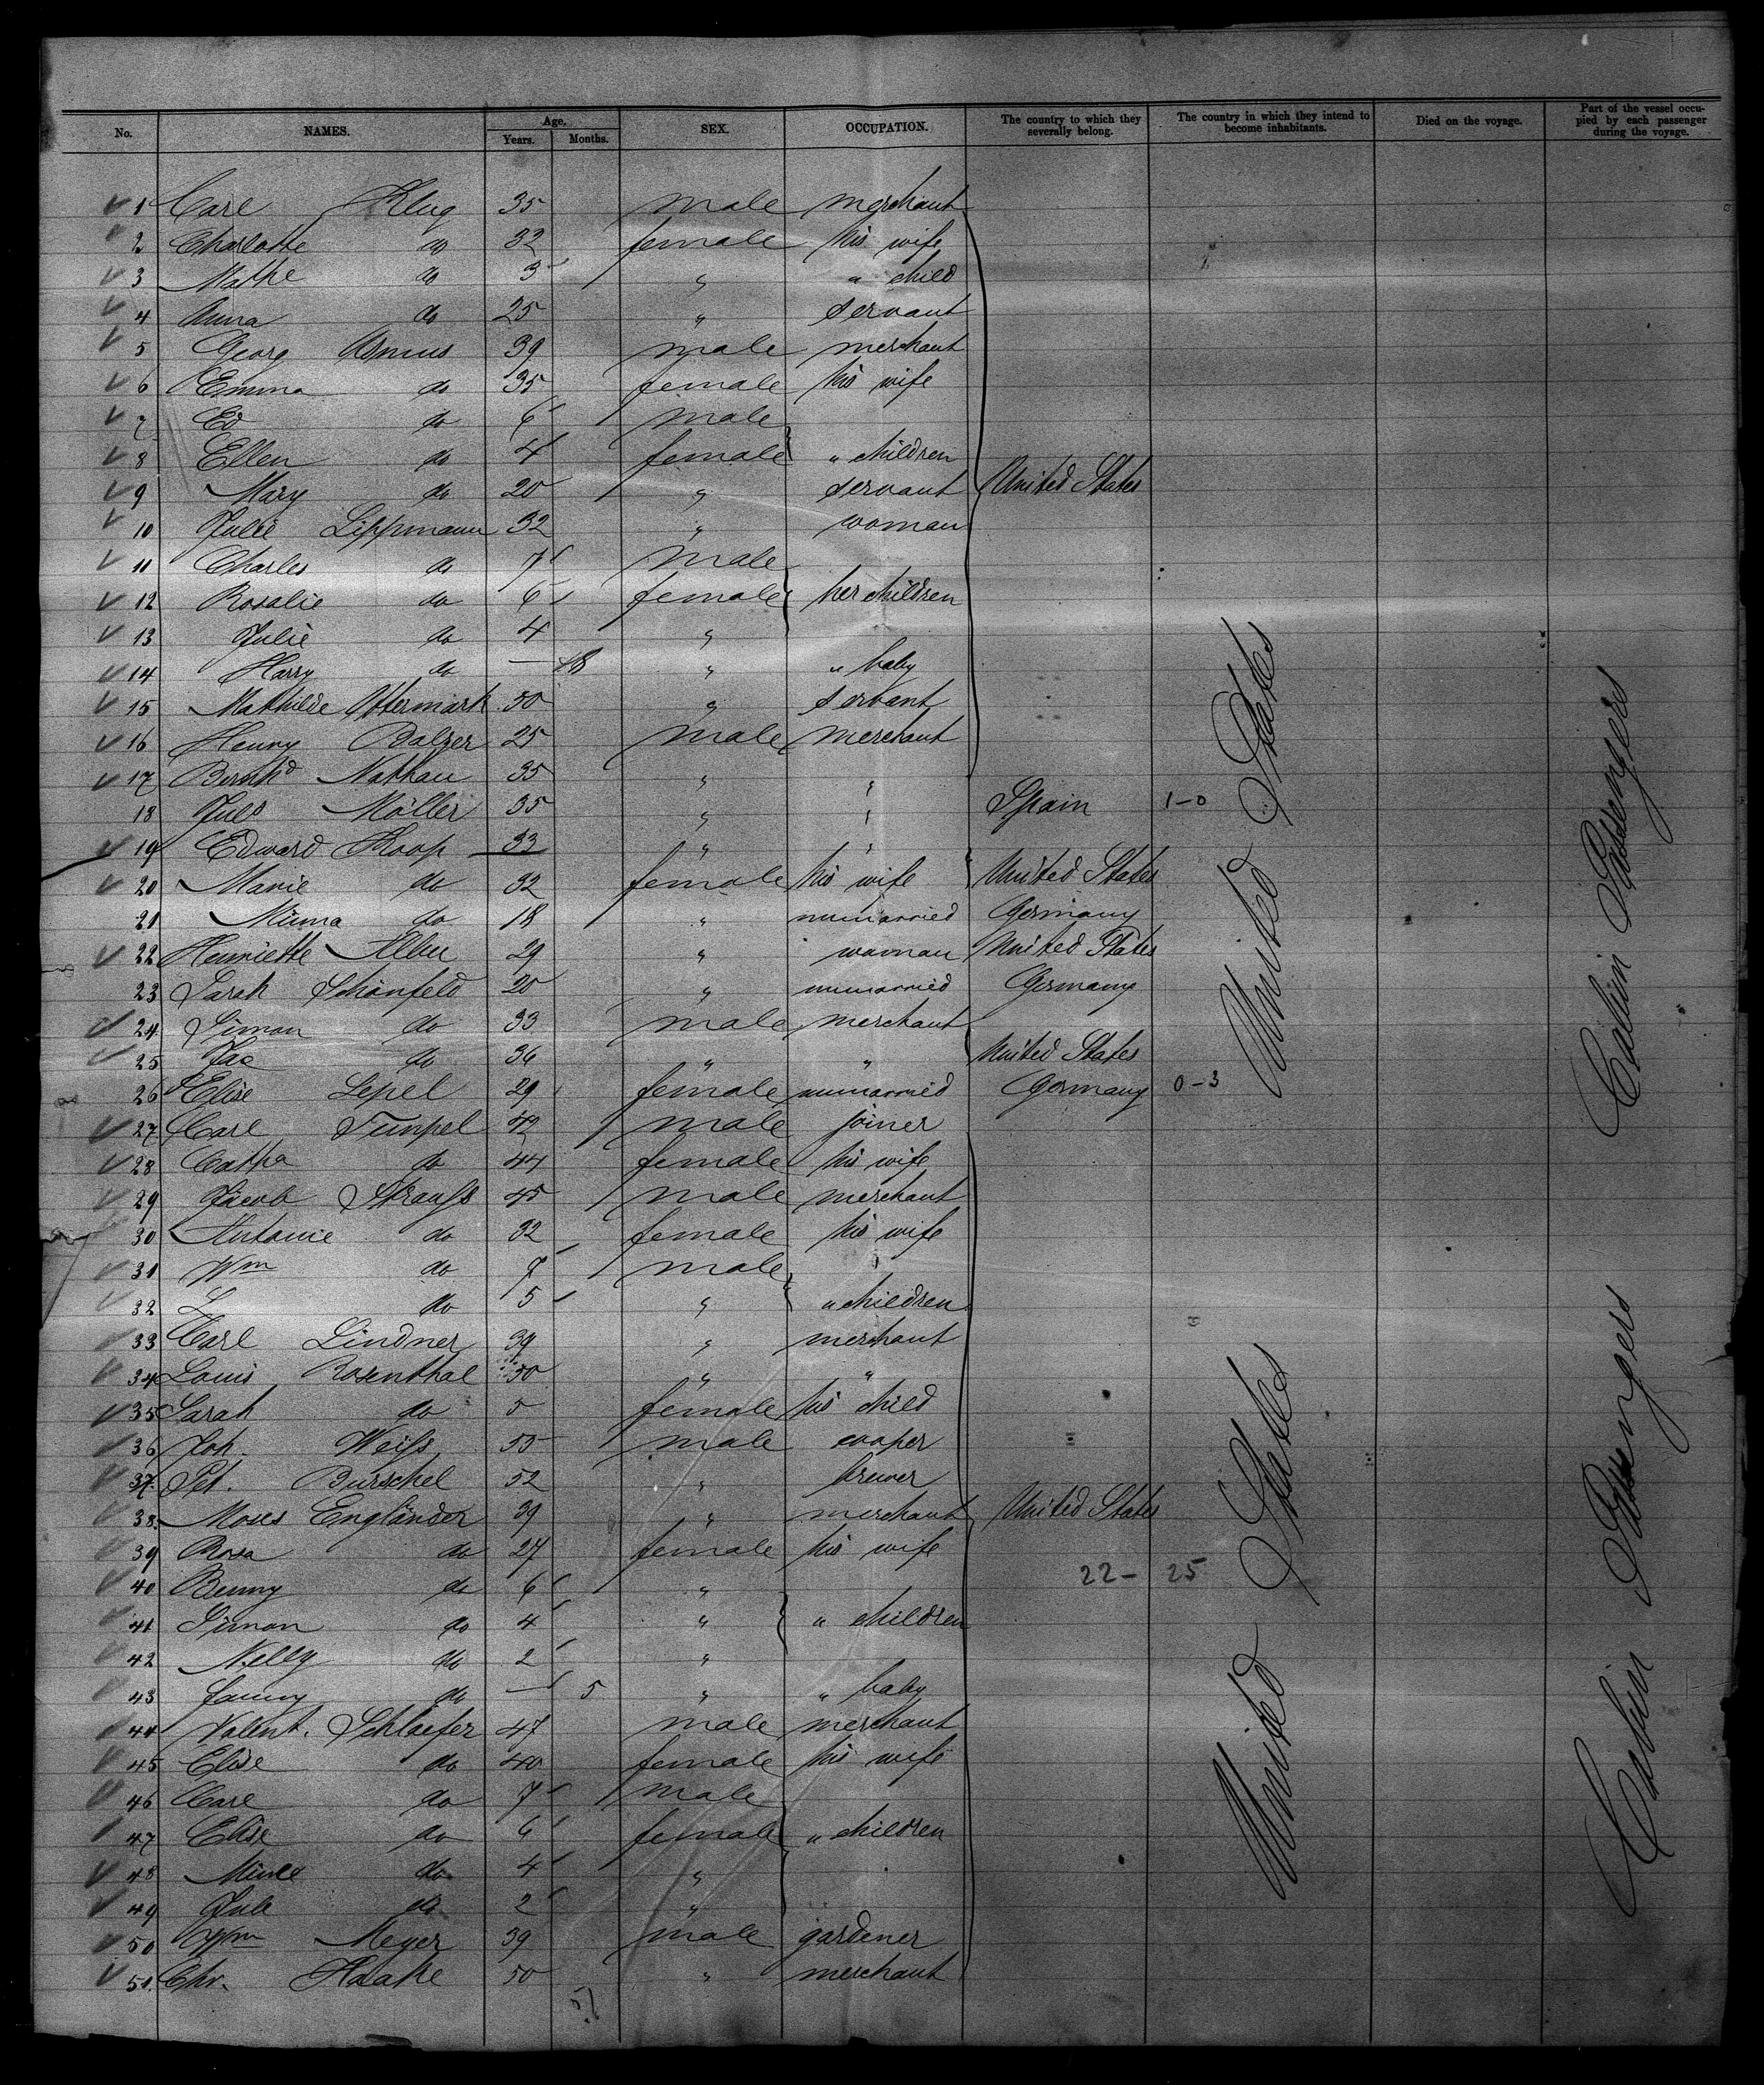 No. NAMES. Age, Years. Months. SEX. OCCUPATION. The country to which they severally belong. The country in which they intend to become inhabitants. Died on the voyage. Part of the vessel occupied by each passenger during the voyage.
1 Carl Klug 35 male merchant
2 Charlotte do 32 female his wife
3 do 3 " " child
4 Anna do 25 " servant
5 Georg Asmus 39 male merchant
6 Emma do 35 female his wife
7 Ed do 6 male
8 Ellen do 4 female " children
9 Mary do 20 " servant United States
10 Julie Lippmann 32 " woman
11 Charles do 7 male
12 Rosalie do 6 female her children
13 Julie do 4 "
14 Harry do — " " baby
15 Mathilde " servant
16 Henry Balzer 25 male merchant
17 Bernhd Nathan 35 " "
18 Juls Möller 35 " " Spain 1-0
19 Edward Koop 33 " "
20 Marie do 32 female his wife United States
21 Minna do 18 " unmarried Germany
22 Henriette 29 " woman United States
23 Sarah Schönfeld 20 " unmarried Germany
24 Simon do 33 male merchant
25 Jac do 36 " " United States
26 Elise Lepel 29 female unmarried Germany 0-3
27 Carl 42 male joiner
28 Catha do 44 female his wife
29 Jacob Strauss 45 male merchant
30 Antonie do 32 female his wife
31 Wm do 7 male
32 L do 5 " " children
33 Carl Lindner 39 " merchant
34 Louis Rosenthal 50 " "
35 Sarah do 5 female his child
36 Joh. Weiss 55 male cooper
37. Pet. Burschel 52 " brewer
38. Moses Engländer 39 " merchant United States
39 Rosa do 27 female his wife
40 Benny do 6 " 22- 25
41 Simon do 4 " " children
42 Nelly do 2 "
43 Fanny do — 5 " " baby
44 Valent. Schlaefer 47 male merchant
45 Elise do 40 female his wife
46 Carl do 7 male
47 Elise do 6 female " children
48 do 4 "
49 Jule do 2 "
50 Wm Meyer 39 male gardener
51. Chr. Haake 50 " merchant
51
United States
United States
Cabin Passengers
Cabin Passengers